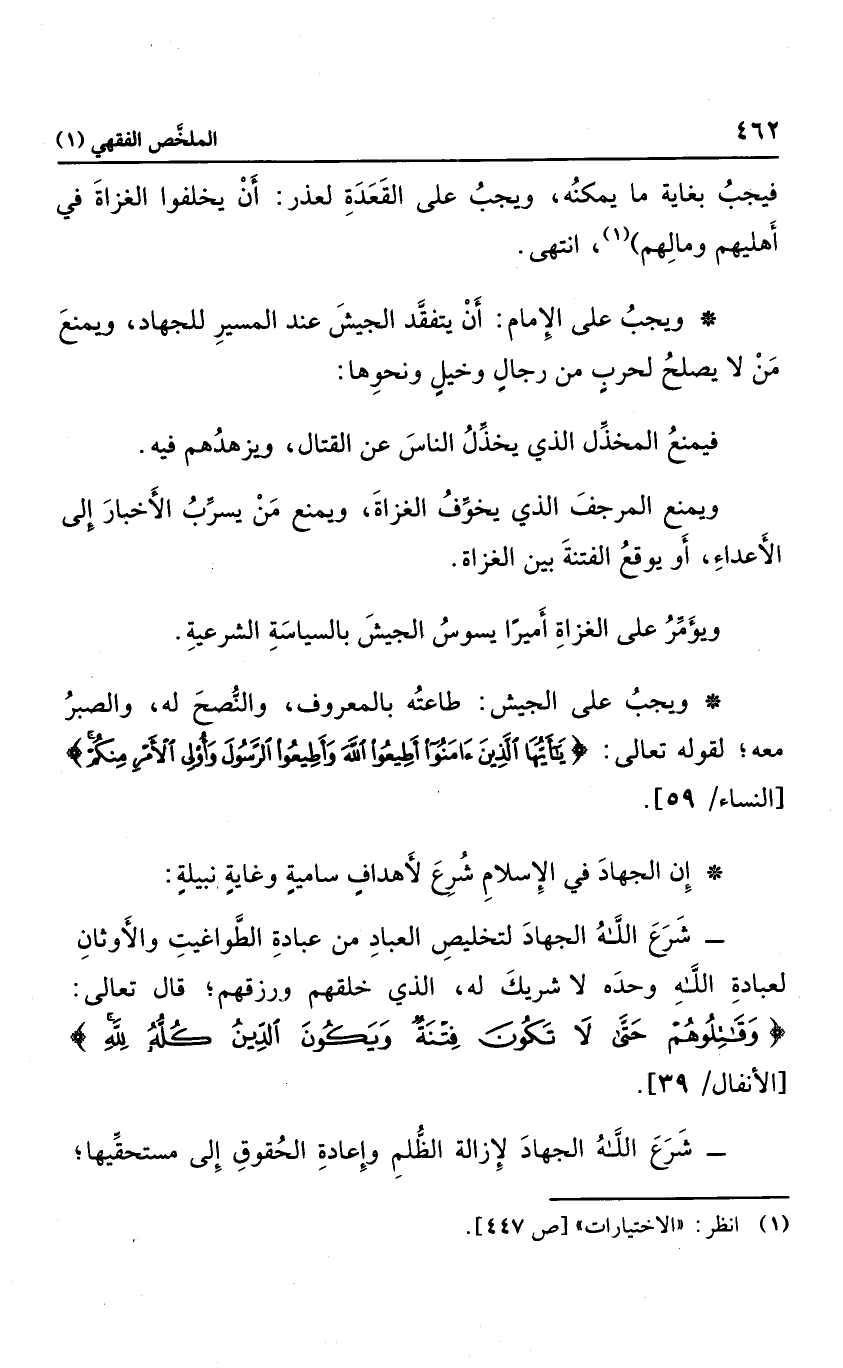 ٤٦٢
الملخَّص الفقهي (١)
فيجبُ بغاية ما يمكنُه، ويجبُ على القَعَدَةِ لعذر: أَنْ يخلفوا الغزاةَ في
أَهليهم ومالِهم)(١)، انتهى.
* ويجبُ على الإِمام: أَنْ يتفقَّد الجيشَ عند المسيرِ للجهاد، ويمنعَ
مَنْ لا يصلحُ لحربٍ من رجالٍ وخيلٍ ونحوِها:
فيمنعُ المخذِّل الذي يخذِّلُ الناسَ عن القتال، ويزهدُهم فيه.
ويمنع المرجفَ الذي يخوِّفُ الغزاةَ، ويمنع مَنْ يسرِّبُ الأَخبارَ إِلى
الأَعداءِ، أَو يوقعُ الفتنةَ بين الغزاة.
ويؤَمِّرُ على الغزاةِ أَميرًا يسوسُ الجيشَ بالسياسَةِ الشرعيةِ.
* ويجبُ على الجيش: طاعتُه بالمعروف، والنُّصحَ له، والصبرُ
معه؛ لقوله تعالى: ﴿يَٰٓأَيُّهَا ٱلَّذِينَ ءَامَنُوٓا۟ أَطِيعُوا۟ ٱللَّهَ وَأَطِيعُوا۟ ٱلرَّسُولَ وَأُو۟لِى ٱلْأَمْرِ مِنكُمْ ۖ﴾
[النساء/ ٥٩].
* إِن الجهادَ في الإِسلامِ شُرِعَ لأَهدافٍ ساميةٍ وغايةٍ نبيلةٍ:
ــ شَرَعَ اللَّهُ الجهادَ لتخليصِ العبادِ من عبادةِ الطَّواغيتِ والأَوثانِ
لعبادةِ اللَّهِ وحدَه لا شريكَ له، الذي خلقهم ورزقهم؛ قال تعالى:
﴿وَقَٰتِلُوهُمْ حَتَّىٰ لَا تَكُونَ فِتْنَةٌ وَيَكُونَ ٱلدِّينُ كُلُّهُۥ لِلَّهِ ۚ﴾
[الأنفال/ ٣٩].
ــ شَرَعَ اللَّهُ الجهادَ لإِزالة الظُّلمِ وإِعادةِ الحُقوقِ إِلى مستحقِّيها؛
(١) انظر: «الاختيارات» [ص ٤٤٧].